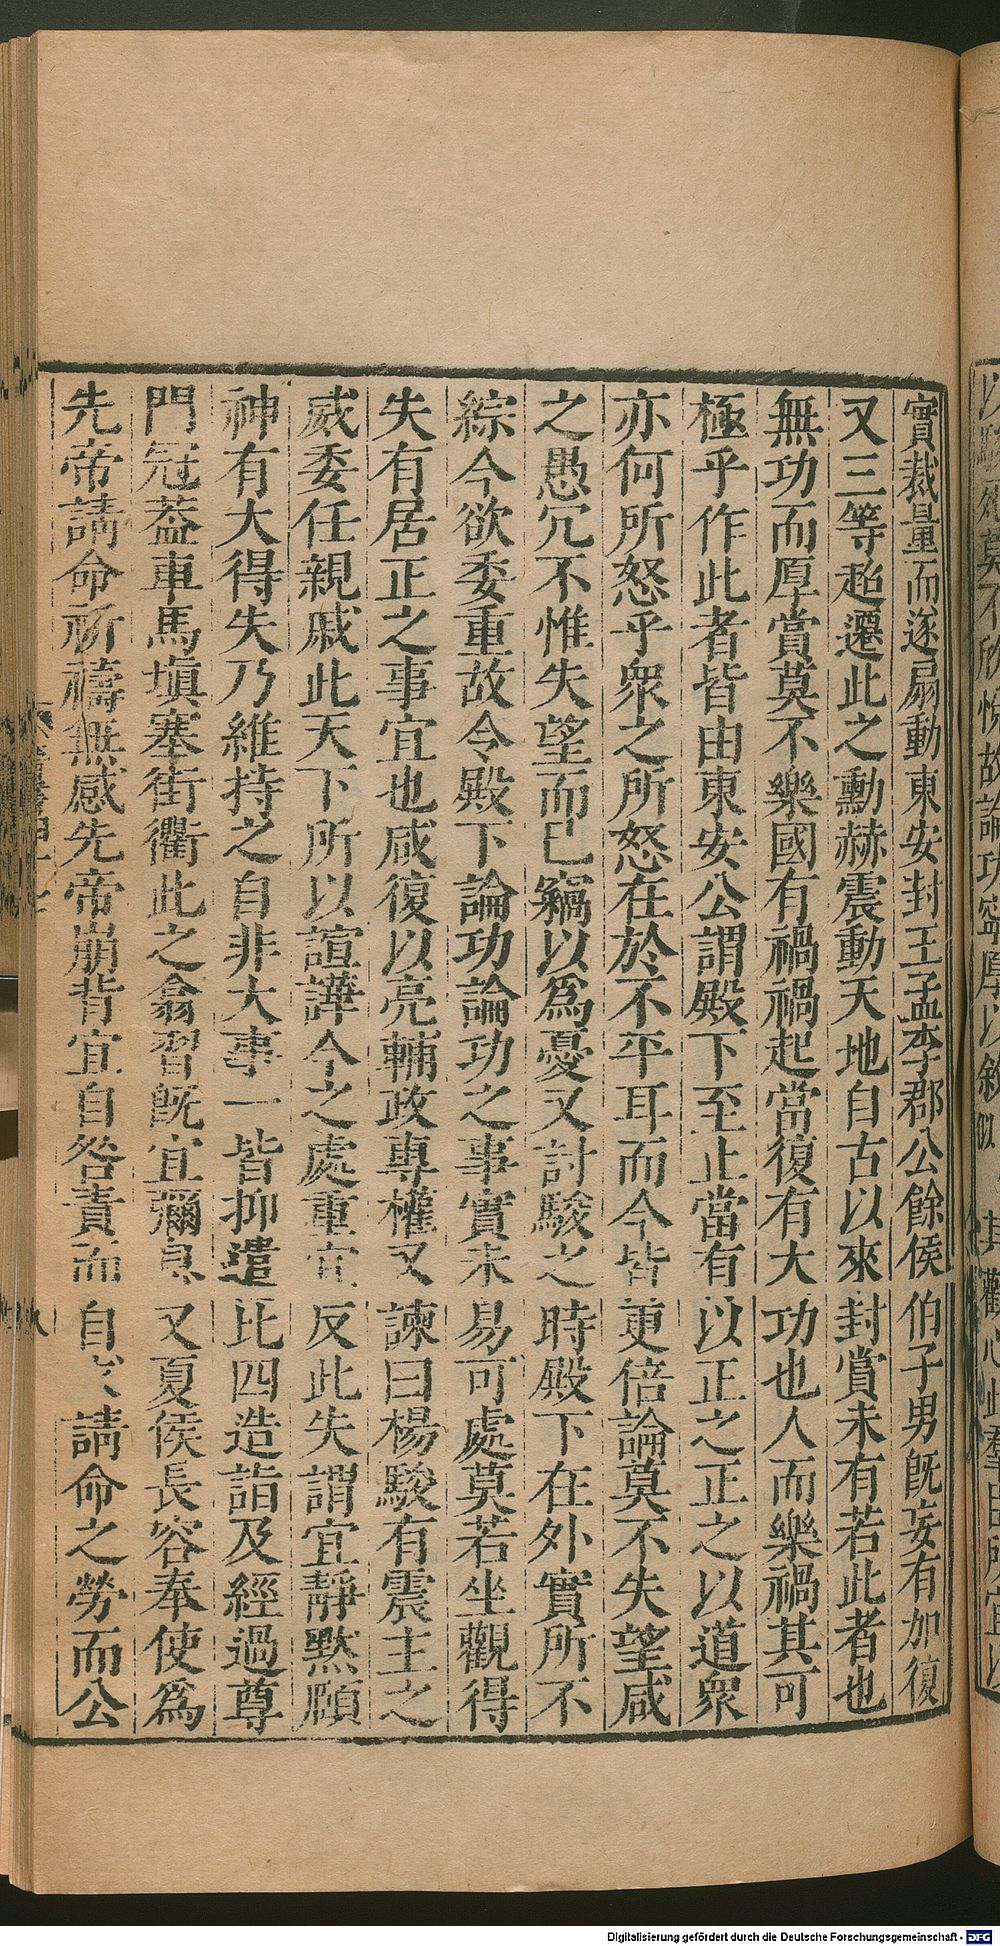 實裁量而遂扇動東安封王孟李郡公餘侯伯子男旣妄有加復
又三等超遷此之勳赫震動天地自古以來封賞未有若此者也
無功而厚賞莫不樂國有禍禍起當復有大功也人而樂禍其可
極乎作此者皆由東安公謂殿下至止當有以正之正之以道衆
亦何所怒乎衆之所怒在於不平耳而今皆更倍論莫不失望咸
之愚冗不惟失望而已竊以爲憂又討駿之時殿下在外實所不
綜今欲委重故令殿下論功論功之事實未易可處莫若坐觀得
失有居正之事宜也咸復以亮輔政專權又諫曰楊駿有震主之
威委任親戚此天下所以諠譁今之處重宜反此失謂宜靜默頤
神有大得失乃維持之自非大事一皆抑遣比四造詣及經過尊
門冠葢車馬塡塞街衢此之翕習旣宜彌息又夏侯長容奉使爲
先帝請命祈禱無感先帝崩背宜自咎責而自 請命之勞而公
以 莫不欣悅故論功寧厚以敘 其歡心此羣 所宜以
Digitalisierung gefördert durch die Deutsche Forschungsgemeinschaft - DFG